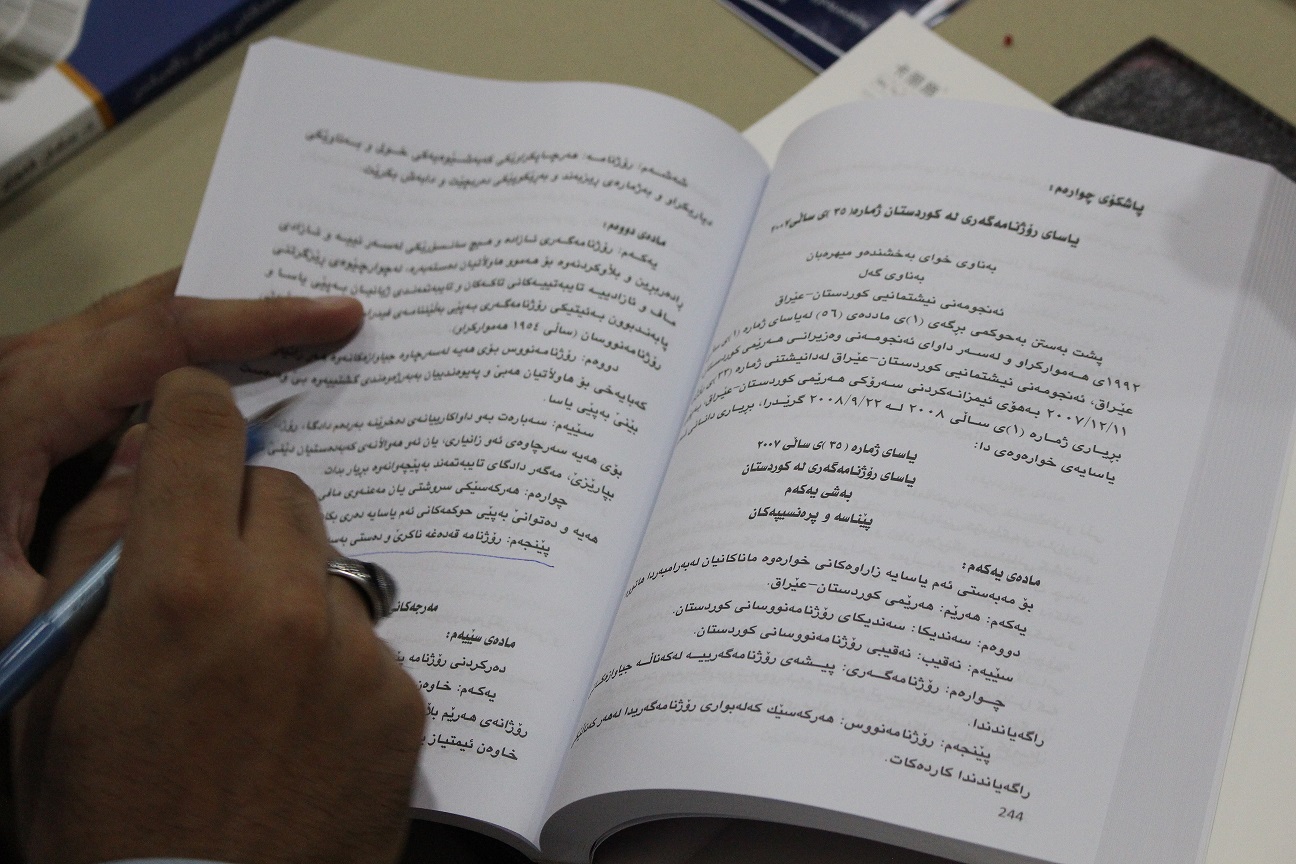 پاشکۆی چوارەم:
یاسای رۆژنامەگەری لە کوردستان ژمارە( ٣٥ )ی ساڵی ٢٠٠٧
بەناوی خوای بەخشندەو میهرەبان
بەناوی گەل
ئەنجومەنی نیشتمانیی کوردستان-عێراق
پشت بەستن بەحوکمی برگەی (١)ی ماددەی (٥٦) لەیاسای ژمارە (١)ی
١٩٩٢ی هەموارکراو و لەسەر داوای ئەنجومەنی وەزیرانی هەرێمی
عێراق، ئەنجومەنی نیشتمانیی کوردستان-عێراق لەدانیشتنی ژمارە (٢٣)
٢٠٠٧/١٢/١١ بەهۆی ئیمزانەکردنی سەرۆکی هەرێمی کوردستان-عێراق،
بریاری ژمارە (١)ی ساڵی ٢٠٠٨ لە ٢٠٠٨/٩/٢٢ گێردرا، بریاری
یاسایەی خوارەوەی دا:
یاسای ژمارە ( ٣٥ )ی ساڵی ٢٠٠٧
یاسای رۆژنامەگەری لە کوردستان
بەشی یەکەم
پێناسە و پرەنسیپەکان
مادەی یەکەم:
بۆ مەبەستی ئەم یاسایە زاراوەکانی خوارەوە ماناکانیان لەبەرامبەردا
یەکەم: هەرێم: هەرێمی کوردستان-عێراق.
دووەم: سەندیکا: سەندیکای رۆژنامەنووسانی کوردستان.
سێیەم: نەقیب: نەقیبی رۆژنامەنووسانی کوردستان.
چوارەم: رۆژنامەگەری: پیشەی رۆژنامەگەرییە لەکەناڵە
راگەیاندندا.
پێنجەم: رۆژنامەنووس: هەرکەسێك کەلەبواری رۆژنامەگەریدا لەهەر
راگەیاندندا کاردەکات.
244
شەشەم: رۆژنامە: هەرچاپکراوێکی کەبەشێوەیەکی خولی و بەناوێکی
دیاریکراو و بەژمارەی ریزبەند و بەرێکوپێکی دەربچێت و دابەش بکرێت.
مادەی دووەم:
یەکەم: رۆژنامەگەری ئازادە و هیچ سانسۆرێکی لەسەر نییە و ئازادی
رادەربرین و بڵاوکردنەوە بۆ هەموو هاوڵاتیان دەستەبەرە، لەچوارچێوەی رێزگرتنی
ماف و ئازادییە تایبەتییەکانی تاکەکان و تایبەتمەندی ژیانیان بەپێی یاسا و
پابەندبوون بەئیتیکی رۆژنامەگەری بەپێی بەڵێننامەی
رۆژنامەنووسان (ساڵی ١٩٥٤ هەموارکراو).
دووەم: رۆژنامەنووس بۆی هەیە لەسەرچاوە جیاوازەکانەوە
کەبایەخی بۆ هاوڵاتیان هەبێ و پەیوەندییان بەبەرژەوەندی گشتییەوە
بێنێ بەپێی یاسا.
سێیەم: سەبارەت بەو داواکارییانەی دەخرێنە بەردەم دادگا،
بۆی هەیە سەرچاوەی ئەو زانیاری، یان ئەو هەواڵانەی کەبەدەستیان
بپارێزێ، مەگەر دادگای تایبەتمەند بەپێچەوانەوە بریار بدات
چوارەم: هەرکەسێکی سروشتی یان مەعنەوی مافی
هەیە و دەتوانێ بەپێی حوکمەکانی ئەم یاسایە دەری بکات
پێنجەم: رۆژنامە قەدەغە ناکرێ و دەستی
مەرجەکانی
مادەی سێیەم:
دەرکردنی رۆژنامە
یەکەم: خاوەن
رۆژانەی هەرێم
خاوەن ئیمتیاز